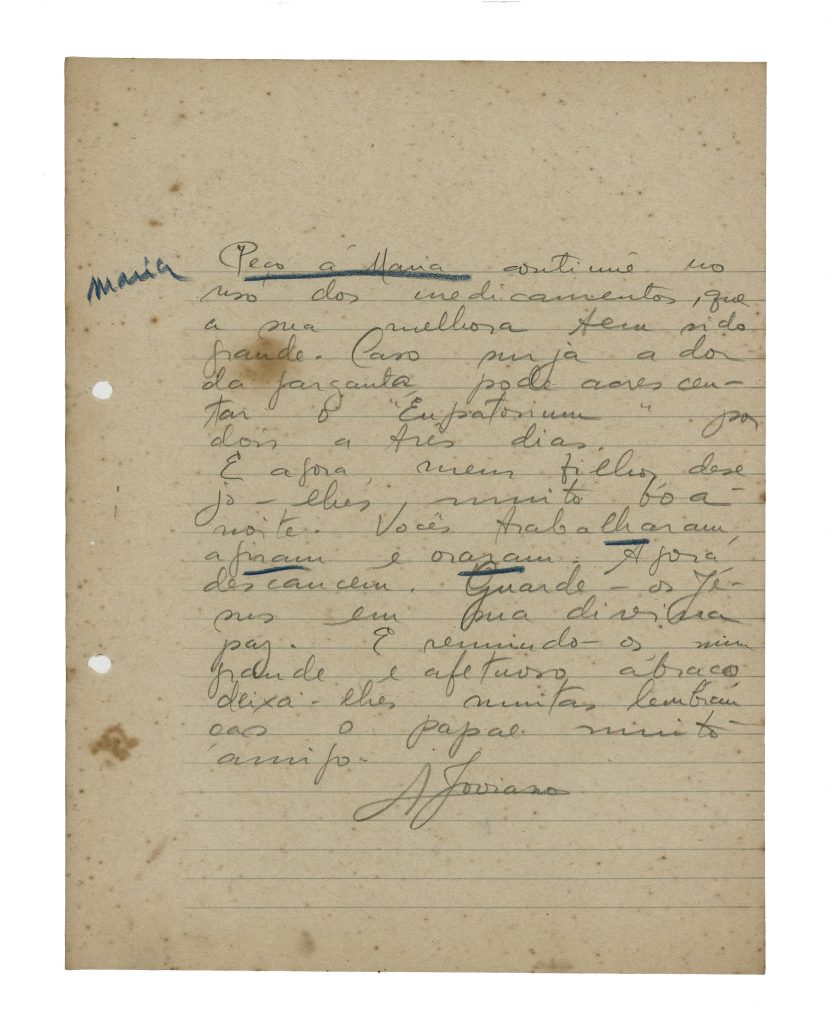 Maria
Peço á Maria continue no
uso dos medicamentos, que
a sua melhora tem sido
grande. Caso surja a dor
da garganta, pode acrescen-
tar o "Eupatorium" por
dois a três dias.
E agora, meu filho, dese
jo-lhes muito bôa
noite. Vocês trabalharam,
agiram e oraram. Agora
descancem. Guarde-os Je-
sus em sua divina
paz. E reunindo-os num
grande e afetuoso abraço
deixa-lhes muitas lembran
ças o papae muito
amigo.
A Joviano